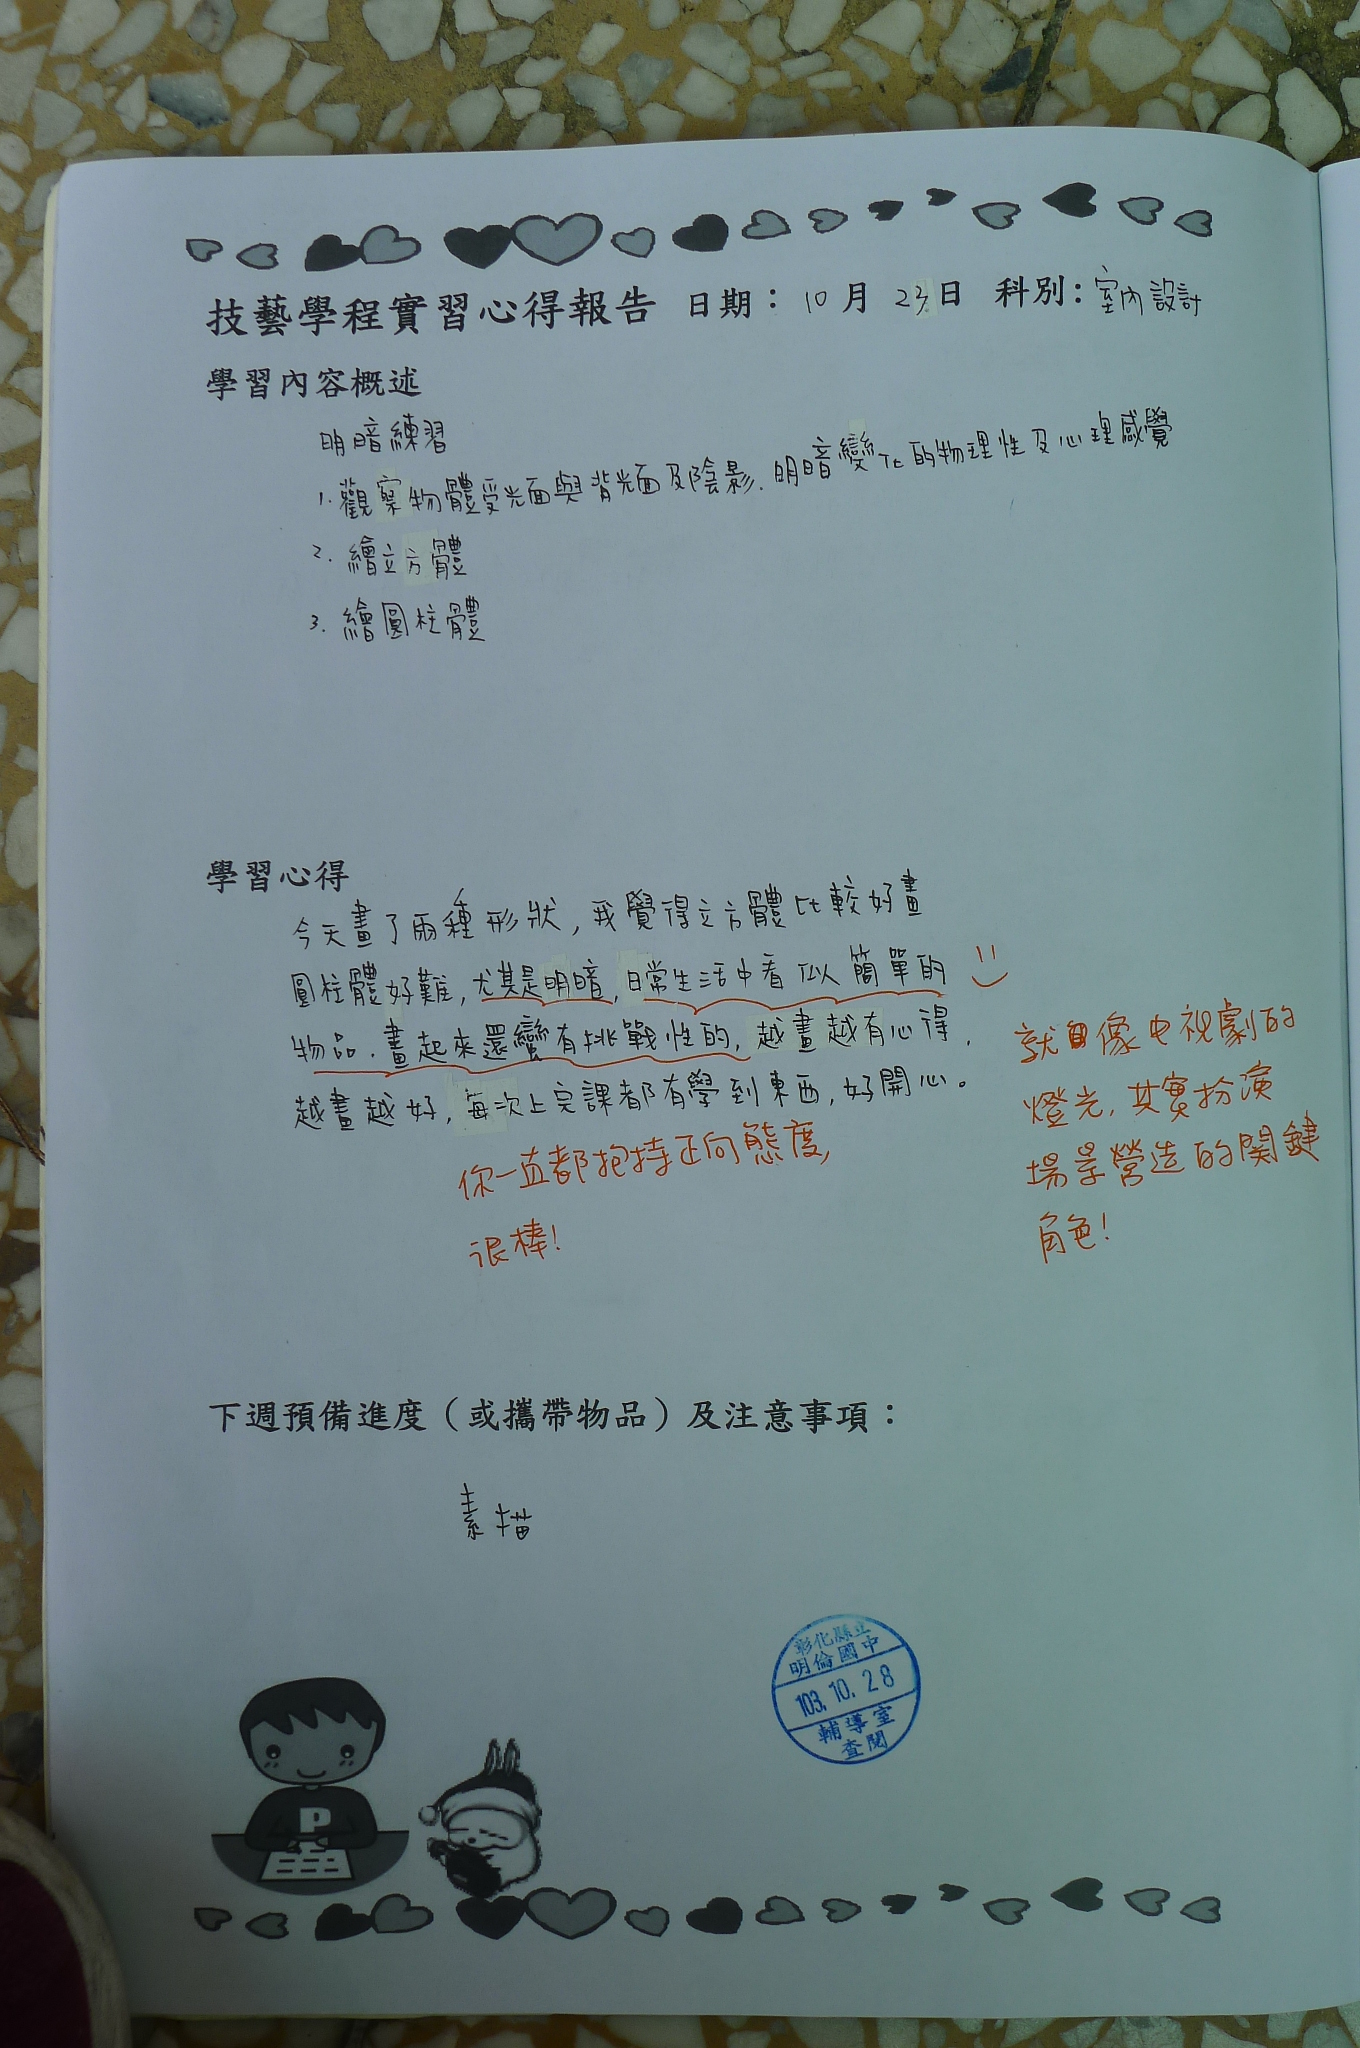 技藝學程實習心得報告 日期：10月23日 科別：室內設計
學習內容概述
明暗練習
1.觀察物體受光面與背光面及陰影、明暗變化的物理性及心理感覺
2.繪立方體
3.繪圓柱體
學習心得
今天畫了兩種形狀，我覺得立方體比較好畫
圓柱體好難，尤其是明暗，日常生活中看似簡單的
物品、畫起來還蠻有挑戰性的，越畫越有心得、
越畫越好，每次上完課都有學到東西，好開心。
就像電視劇的
燈光，其實扮演
場景營造的關鍵
角色！
你一直都抱持正向態度，
很棒！
下週預備進度（或攜帶物品）及注意事項：
素描
彰化縣立
明倫國中
103.10.28
輔導室
查閱
P